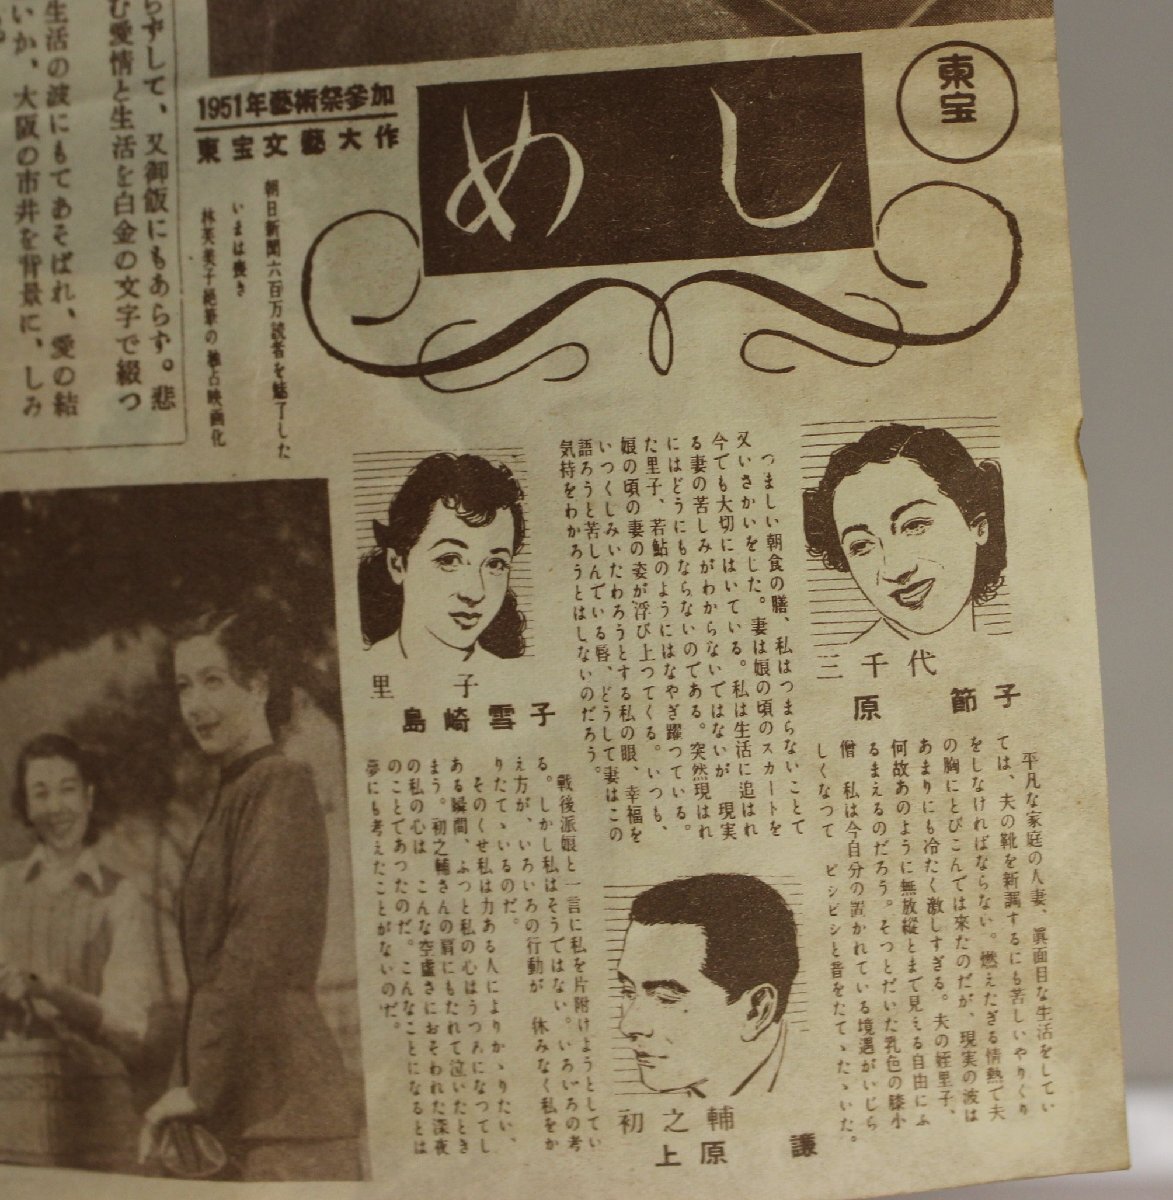 らずして、又御飯にもあらず。悲
む愛情と生活を白金の文字で綴つ
生活の波にもてあそばれ、愛の結
いか、大阪の市井を背景に、しみ
1951年藝術祭参加
東宝文藝大作
めし
東宝
朝日新聞六百万読者を魅了した
いまは喪き
林芙美子絶筆の独占映画化
三千代
原節子
平凡な家庭の人妻、眞面目な生活をしてい
ては、夫の靴を新調するにも苦しいやりくり
をしなければならない。燃えたぎる情熱で夫
の胸にとびこんでは来たのだが、現実の波は
あまりにも冷たく激しすぎる。夫の姪里子、
何故あのように無放縦とまで見える自由にふ
るまえるのだろう。そつとだいた乳色の膝小
僧 私は今自分の置かれている境遇がいじら
しくなつて ピシピシと音をたてゝたゝいた。
つましい朝食の膳、私はつまらないことで
又いさかいをした。妻は娘の頃のスカートを
今でも大切にはいている。私は生活に追はれ
る妻の苦しみがわからないではないが 現実
にはどうにもならないのである。突然現はれ
た里子、若鮎のようにはなやぎ躍つている。
娘の頃の妻の姿が浮び上つてくる。いつも、
いつくしみいたわろうとする私の眼、幸福を
語ろうと苦しんでいる唇、どうして妻はこの
気持をわかろうとはしないのだろう。
初之輔
上原謙
里子
島崎雪子
戦後派娘と一言に私を片附けようとしてい
る。しかし私はそうではない。いろいろの考
え方が、いろいろの行動が 休みなく私をか
りたてゝいるのだ。
そのくせ私は力ある人によりかゝりたい、
ある瞬間、ふつと私の心はうつろになつてし
まう。初之輔さんの肩にもたれて泣いたとき
の私の心は こんな空虚さにおそわれた深夜
のことであつたのだ。こんなことになるとは
夢にも考えたことがないのだ。